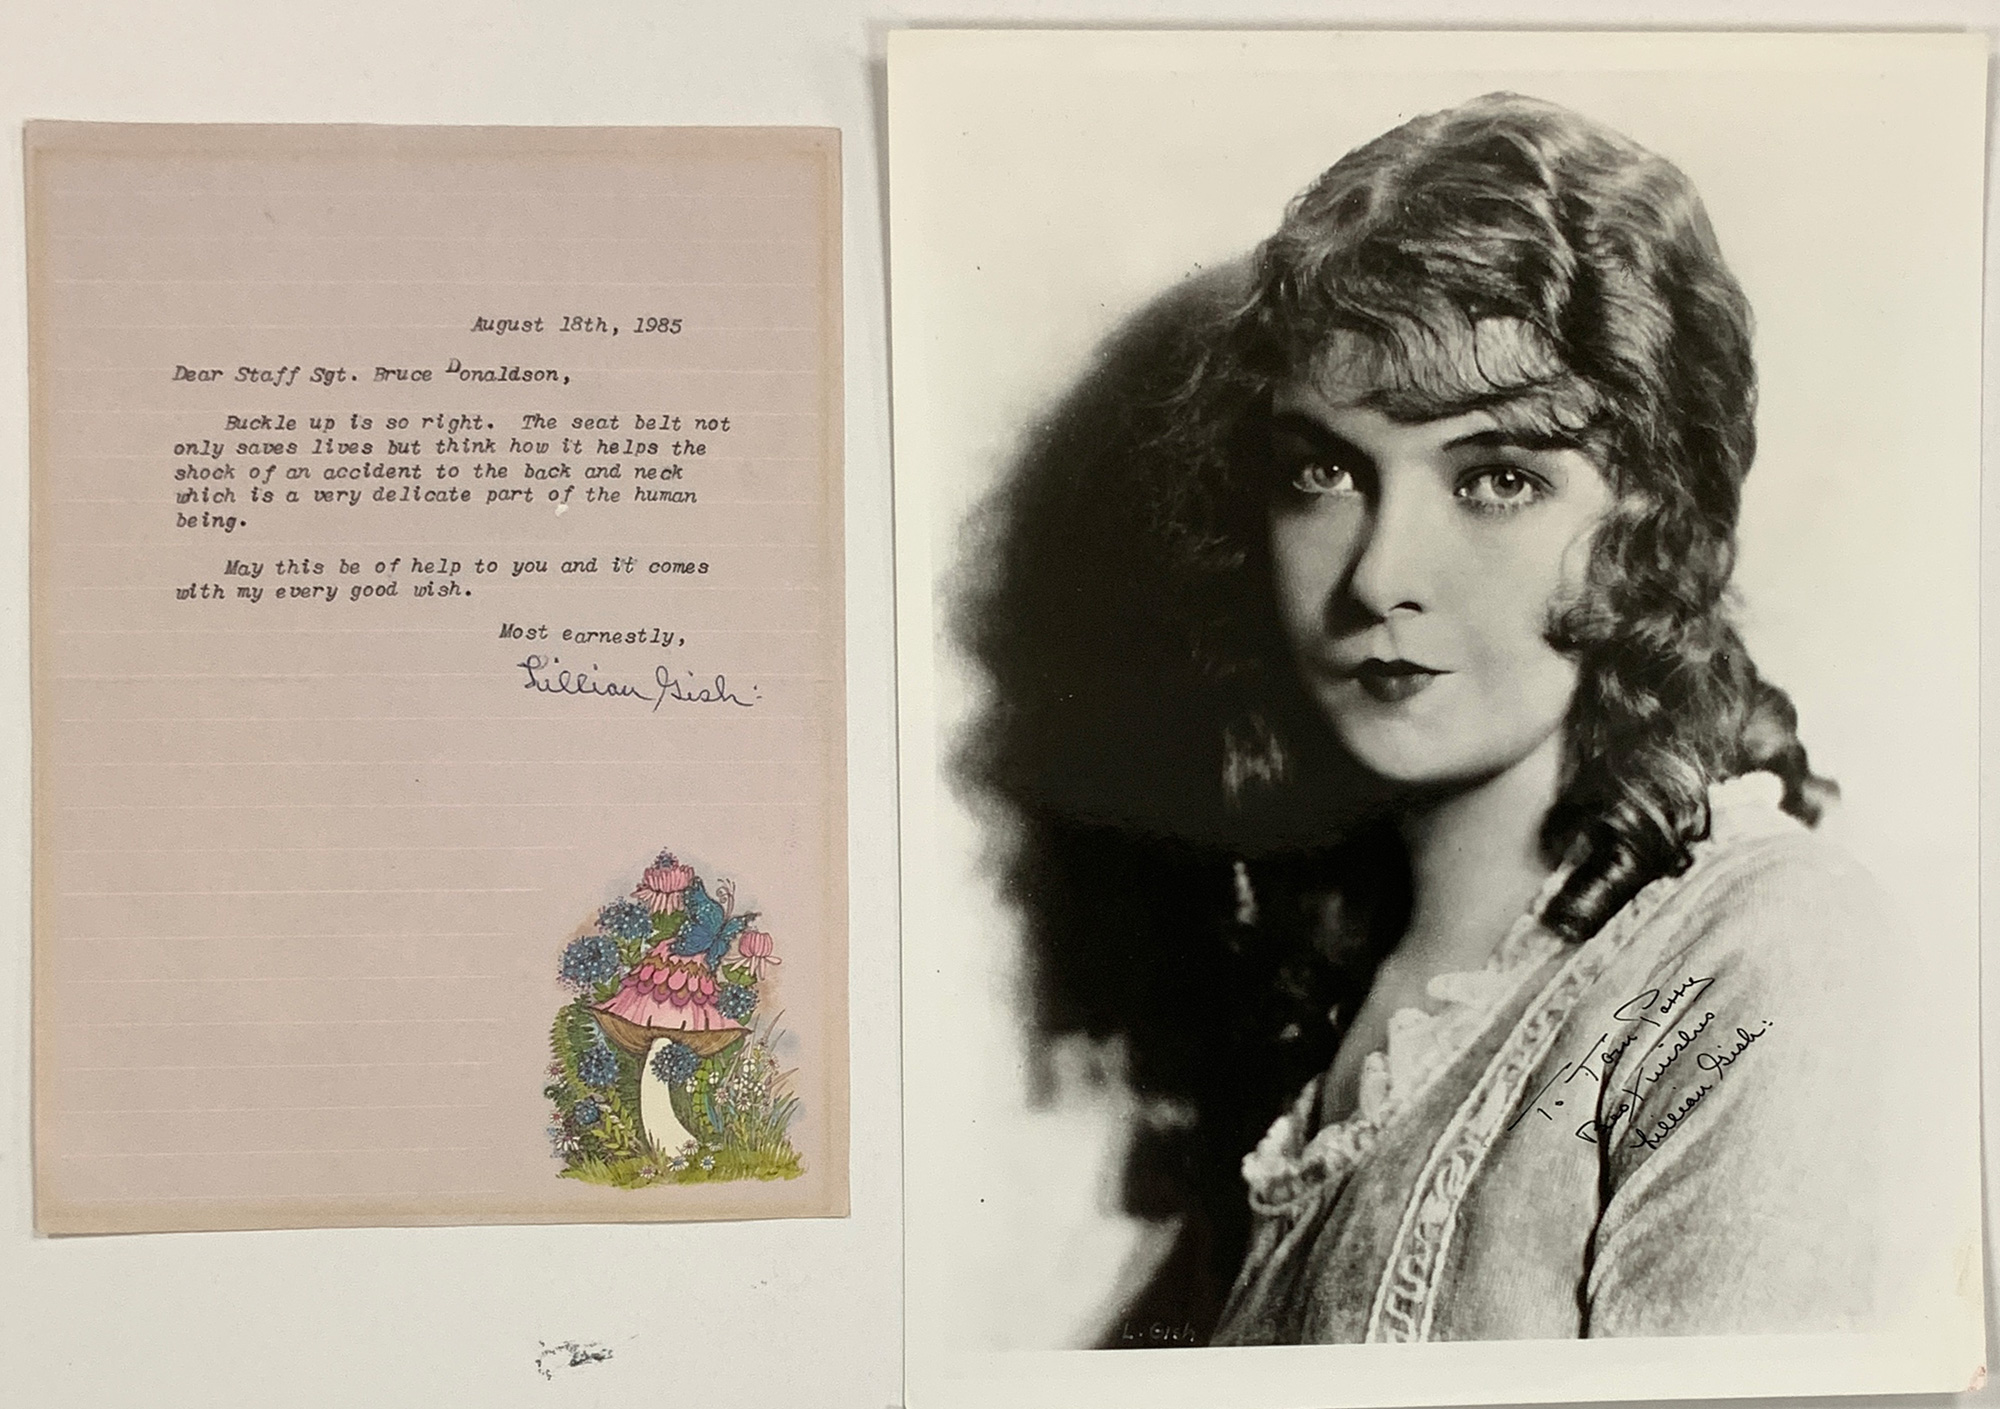 August 18th, 1985
Dear Staff Sgt. Bruce Donaldson,
Buckle up is so right. The seat belt not
only saves lives but think how it helps the
shock of an accident to the back and neck
which is a very delicate part of the human
being.
May this be of help to you and it comes
with my every good wish.
Most earnestly,
Lillian Gish:
To Tom
Best wishes
Lillian Gish:
L. Gish